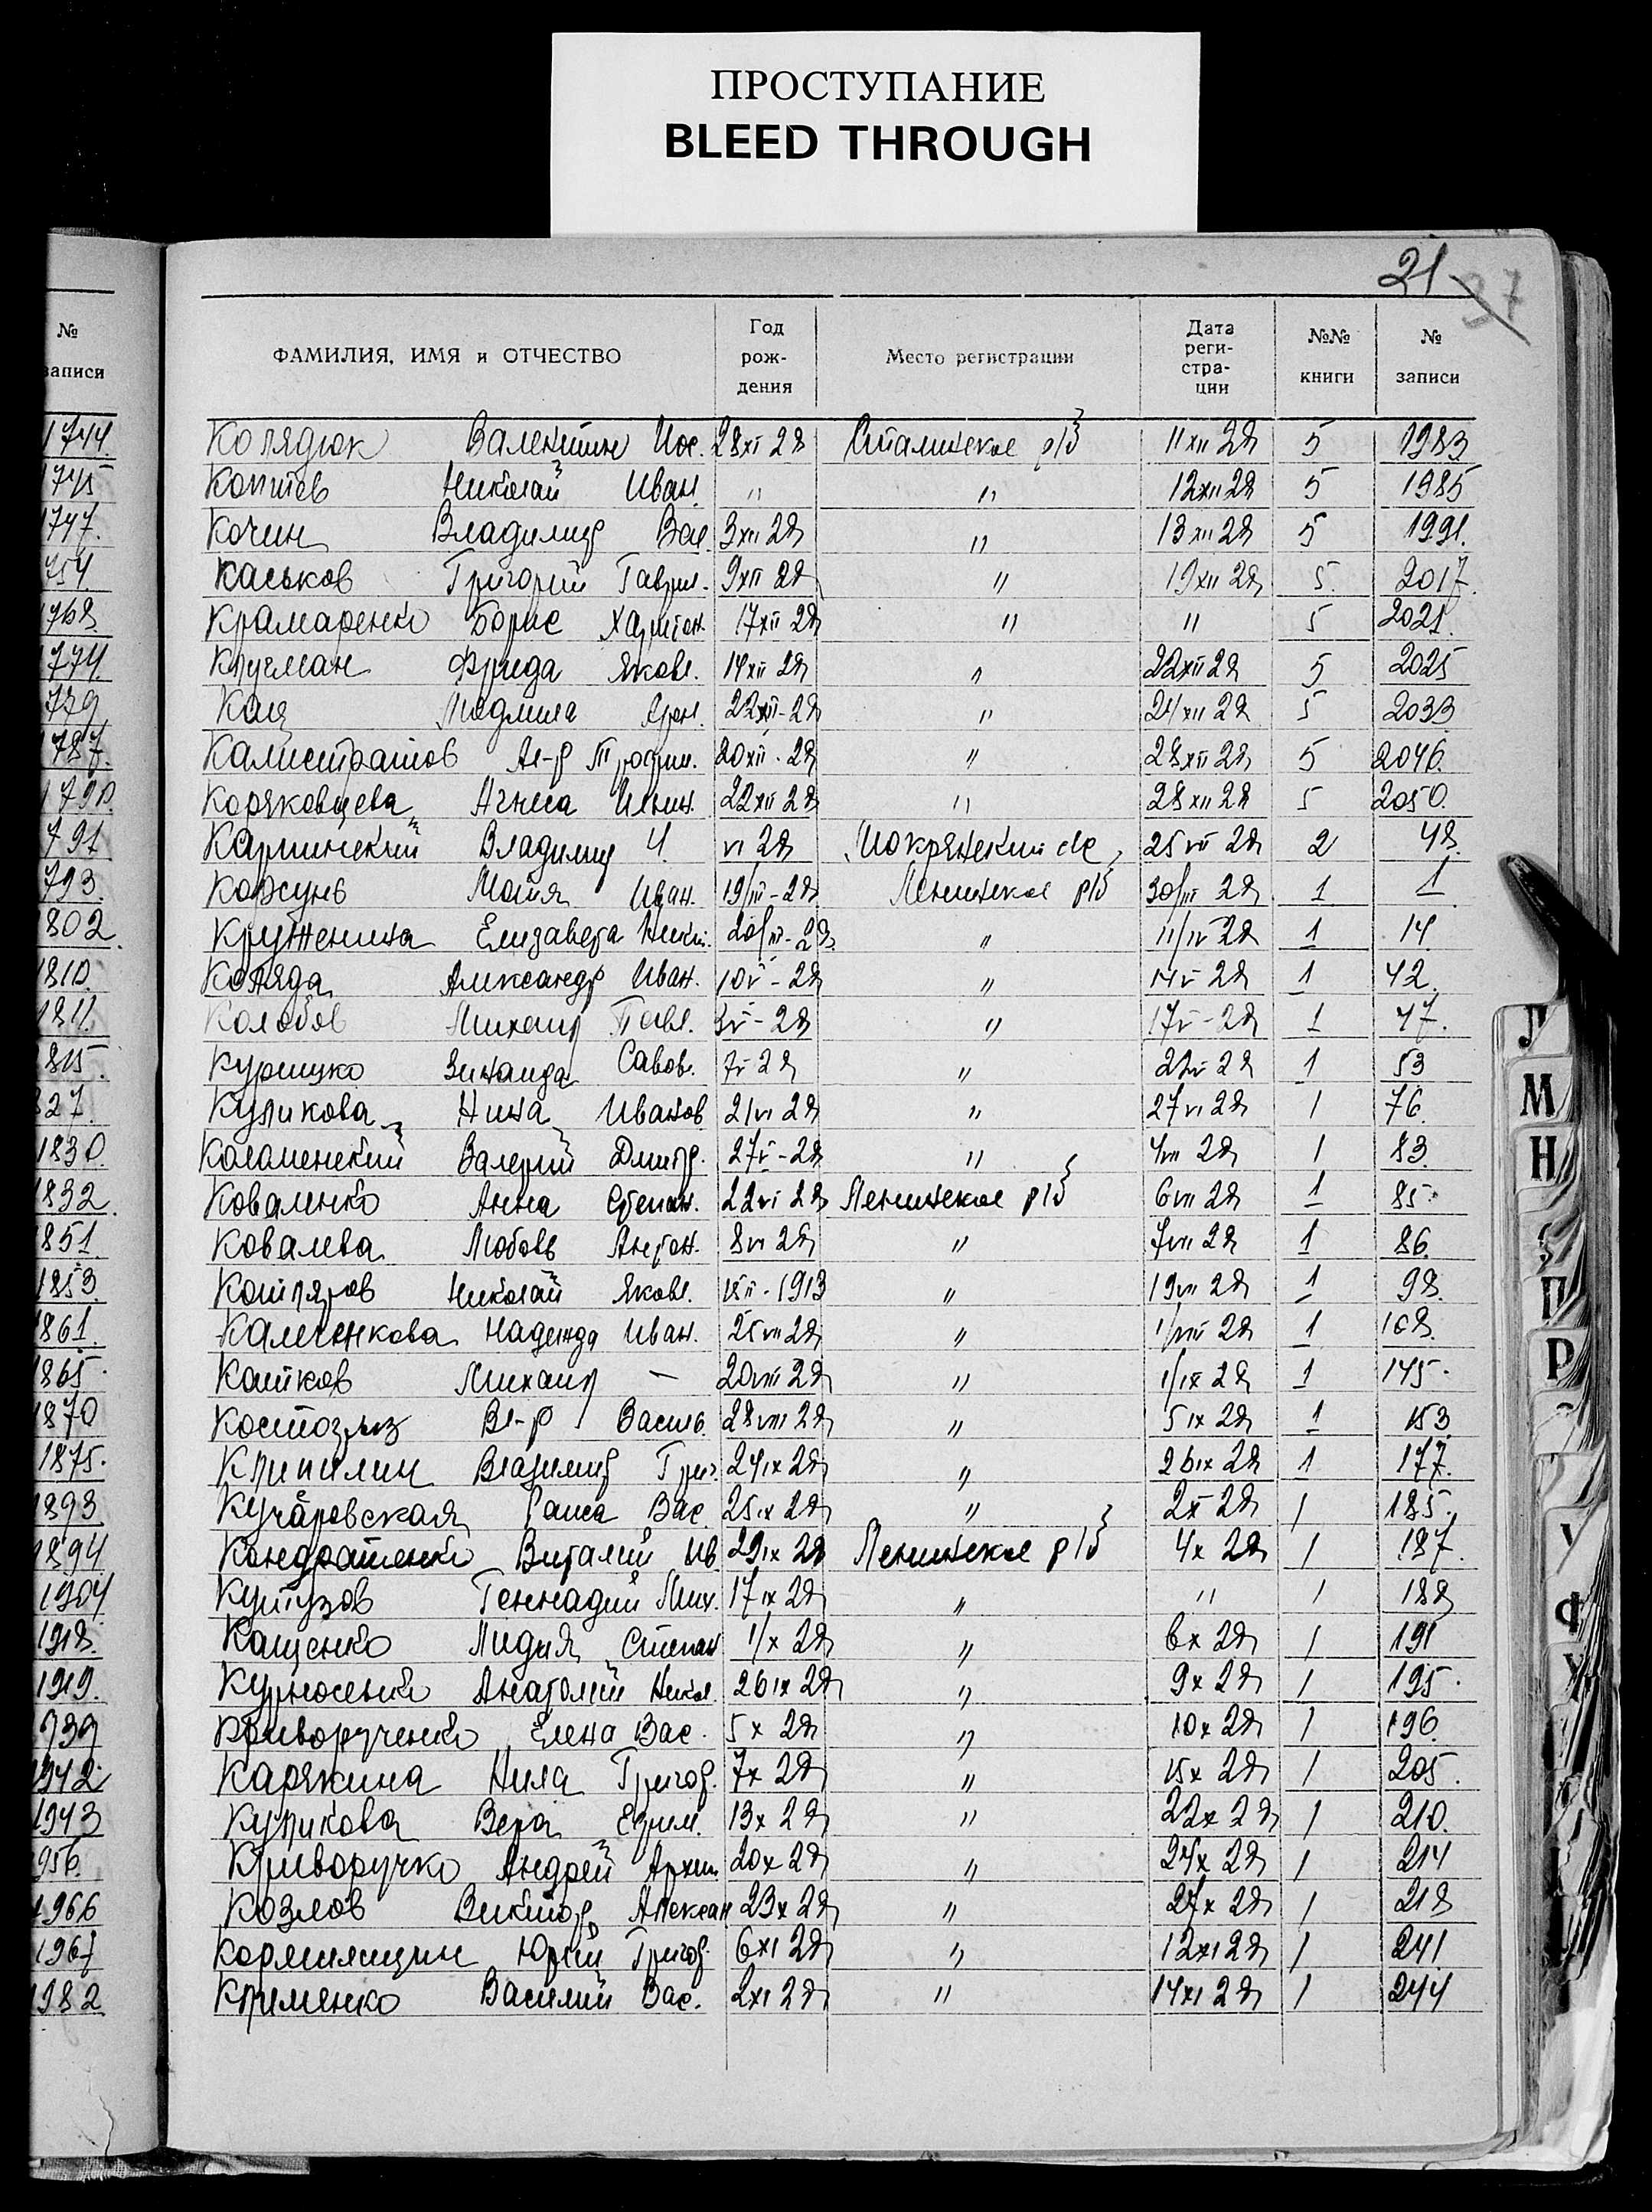 ПРОСТУПАНИЕ
BLEED THROUGH
21 37
№ записи
ФАМИЛИЯ, ИМЯ и ОТЧЕСТВО Год рож- дения Место регистрации Дата реги- стра- ции №№ книги № записи
1744. Колядюк Валентин Иос. 28 XI 28 Сталинское р/б 11 XII 28 5 1983
1745 Коптев Николай Иван. " " 12 XII 28 5 1985
1747. Кочин Владимир Вас. 3 XII 28 " 13 XII 28 5 1991.
754. Каськов Григорий Гаврил. 9 XII 28 " 19 XII 28 5. 2017.
1768. Крамаренко Борис Харитон. 17 XII 28 " " 5 2021.
1774. Кругман Фрида Яковл. 14 XII 28 " 22 XII 28 5 2025
779 Кац Людмила Арон. 22 XII-28 " 24 XII 28 5 2033
1787. Калистратов Ал-р Трофим. 20 XII. 28 " 28 XII 28 5 2046.
1790. Коряковцева Агнеса Ильин. 22 XII 28 " 28 XII 28 5 2050.
791 Карпинский Владимир И. VI 28 Мокрянский с/с 25 VII 28 2 48.
793. Коржунь Майя Иван. 19/III-28 Ленинское р/б 30/III 28 1 1
802. Круженина Елизавета Никит. 20/III-28 " 11/IV 28 1 14
1810. Коляда Александр Иван. 10 V-28 " 14 V 28 1 42.
1811. Колобов Михаил Павл. 3 V-28 " 17 V-28 1 47.
815. Курицко Зинаида Савов. 7 V 28 " 22 V 28 1 53
827. Куликова Нина Иванов. 21 VI 28 " 27 VI 28 1 76.
1830. Коломенский Валерий Дмитр. 27 V-28 " 4 VII 28 1 83.
1832. Коваленко Анна Степан. 22 VI 28 Ленинское р/б 6 VII 28 1 85
851. Ковалева Любовь Антон. 8 VI 28 " 7 VII 28 1 86.
1853. Котляров Николай Яковл. 18 II-1913 " 19 VII 28 1 98.
861. Калечикова Надежда Иван. 25 VII 28 " 1/VIII 28 1 108.
865. Катков Михаил — 20 VIII 28 " 1/IX 28 1 145.
870 Костогрыз Вл-р Василь. 28 VIII 28 " 5 IX 28 1 153
1875. Крипилин Владимир Григ. 24 IX 28 " 26 IX 28 1 177.
1893. Кучаровская Раиса Вас. 25 IX 28 " 2 X 28 1 185.
1894 Кондратенко Виталий Ив. 29 IX 28 Ленинское р/б 4 X 28 1 187.
1904 Кутузов Геннадий Мих. 17 IX 28 " " 1 188
1918. Кащенко Лидия Степан 1/X 28 " 6 X 28 1 191
1919. Курносенко Анатолий Никол. 26 IX 28 " 9 X 28 1 195.
939 Криворученко Елена Вас. 5 X 28 " 10 X 28 1 196.
1942. Карякина Нила Григор. 7 X 28 " 15 X 28 1 205.
1943 Куликова Вера Ефим. 13 X 28 " 22 X 28 1 210.
956. Криворучко Андрей Архип. 20 X 28 " 24 X 28 1 214
1966 Козлов Виктор Алексан 23 X 28 " 27 X 28 1 218
1967 Кормилицин Юрий Григор. 6 XI 28 " 12 XI 28 1 241
1982 Клименко Василий Вас. 2 XI 28 " 14 XI 28 1 244
Л
М
Н
П
Р
У
Ф
Х